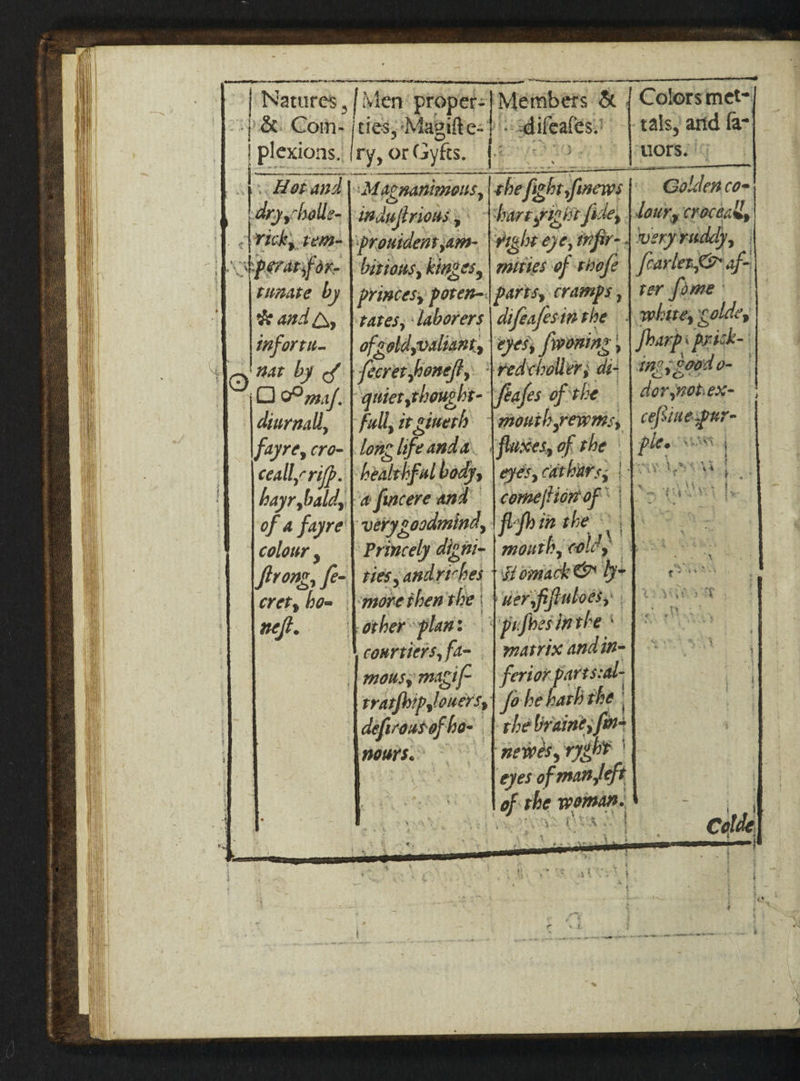 Natures,
& Com-
plexions.
Men proper-
ties, Magiste-
ry, or Gyfts.
Members &
difeafes.
Colors met-
tals, and fa-
uors.
☉
Hot and
dry, cholle-
rick, tem-
perat, for-
tunate by
⚹ and △,
infortu-
nat by ☍
□ ☌ maſ.
diurnall,
fayre, cro-
ceall, criſp.
hayr, bald,
of a fayre
colour,
ſtrong, ſe-
cret, ho-
neſt.
Magnanimous,
induſtrious,
prouident, am-
bitious, kinges,
princes, poten-
tates, laborers
of gold, valiant,
ſecret, honeſt,
quiet, thought-
full, it giueth
long life and a
healthful body,
a ſincere and
very good mind,
Princely digni-
ties, and riches
more then the
other plan:
courtiers, fa-
mous, magiſ-
tratſhip, louers,
deſirous of ho-
nours.
the ſight, ſinews
hart, right ſide,
right eye, infir-
mities of thoſe
parts, cramps,
diſeaſes in the
eyes, ſwoning,
red choller, di-
ſeaſes of the
mouth, rewms,
fluxes, of the
eyes, cathars,
comeſtion of
fleſh in the
mouth, cold,
ſtomack & ly-
uer, fiſtuloes,
puſhes in the
matrix and in-
ferior parts: al-
ſo he hath the
the braine, ſin-
newes, ryght
eyes of man, left
of the woman.
Golden co-
lour, croceall,
very ruddy,
ſcarlet, & af-
ter ſome
white, golde,
ſharp, prick-
ing, good o-
dor, not ex-
ceſſiue, pur-
ple.
Colde